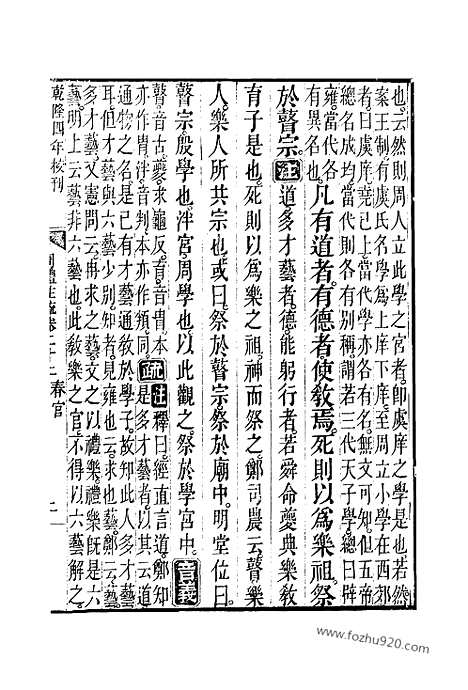 也云然則周人立此學之宮者即虞庠之學是也若然
案王制有虞氏名學爲上庠下庠至周立小學在西郊
者曰虞庠堯已上當代學亦各有名無文可知但五帝
總名成均當代則各有別稱謂若三代天子學總曰辟
雍當代各
有異名也
凡有道者有德者使敎焉死則以爲樂祖祭
於瞽宗注道多才藝者德能躬行者若舜命夔典樂敎
育子是也死則以爲樂之祖神而祭之鄭司農云瞽樂
人樂人所共宗也或曰祭於瞽宗祭於廟中明堂位曰
瞽宗殷學也泮宮周學也以此觀之祭於學宮中音義
瞽音古夔求龜反育音胄本
亦作胄泮音判本亦作頖同
疏
注釋曰經直言道鄭知
是多才藝者以其云道
通物之名是已有才藝通敎於學子故知此人多才藝
耳但才藝與六藝少別知者見雍也云求也藝鄭云藝
多才藝又憲問云冉求之藝文之以禮樂禮樂既是六
藝明上云藝非六藝也此敎樂之官不得以六藝解之
乾隆四年校刊
周禮注疏卷二十二 春官
www.fozhu920.com